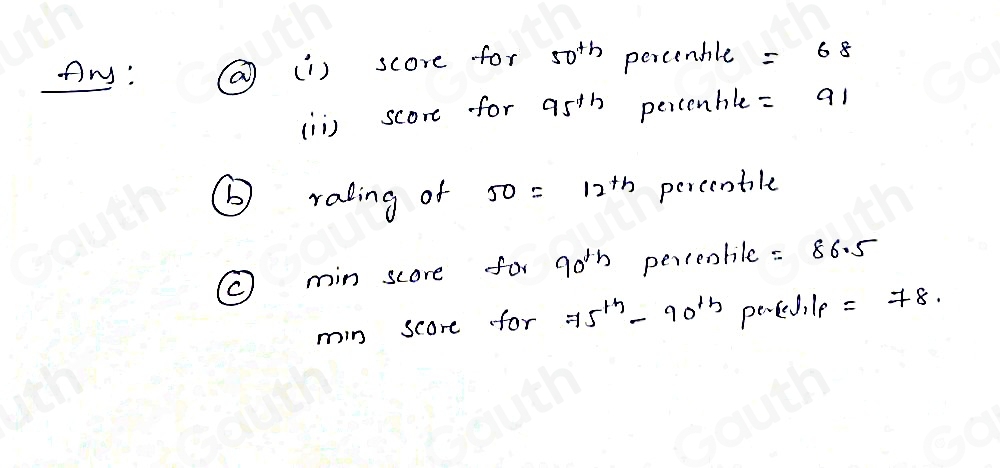 Ans : (a) (i) score for 50th percentile = 68
(ii) score for 95th percentile = 91
(b) rating of 50 = 12th percentile
(c) min score for 90th percentile = 86.5
min score for 75th - 90th percentile = 78.